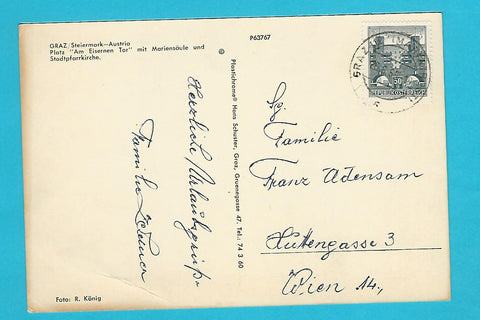 GRAZ/Steiermark—Austria
Platz "Am Eisernen Tor" mit Mariensäule und
Stadtpfarrkirche.
P63767
Herzliche Urlaubsgrüße
Familie
Foto: R. König
© Plastichrome® Hans Schuster, Graz, Gruenegasse 47, Tel.: 74 3 60
GRAZ
50
REPUBLIK ÖSTERREICH
Sg.
Familie
Franz Adensam
Hüttengasse 3
Wien 14.,